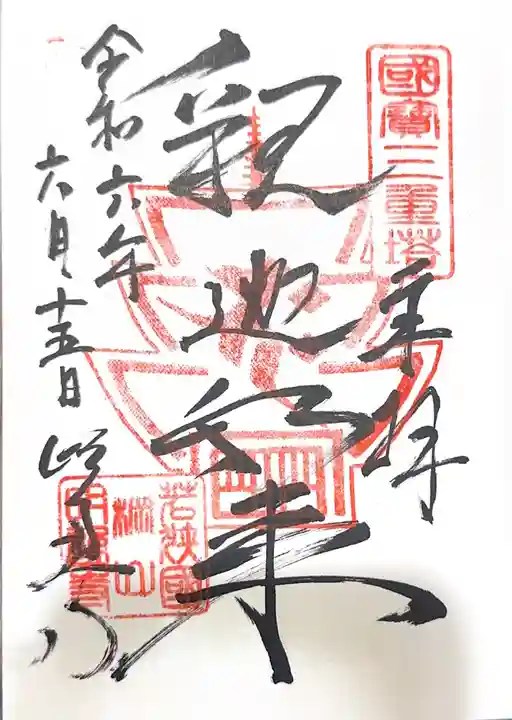 國寳三重塔
奉拝
釈迦如来
令和六年
六月十五日
明通寺
若狭國
棡山
明通寺